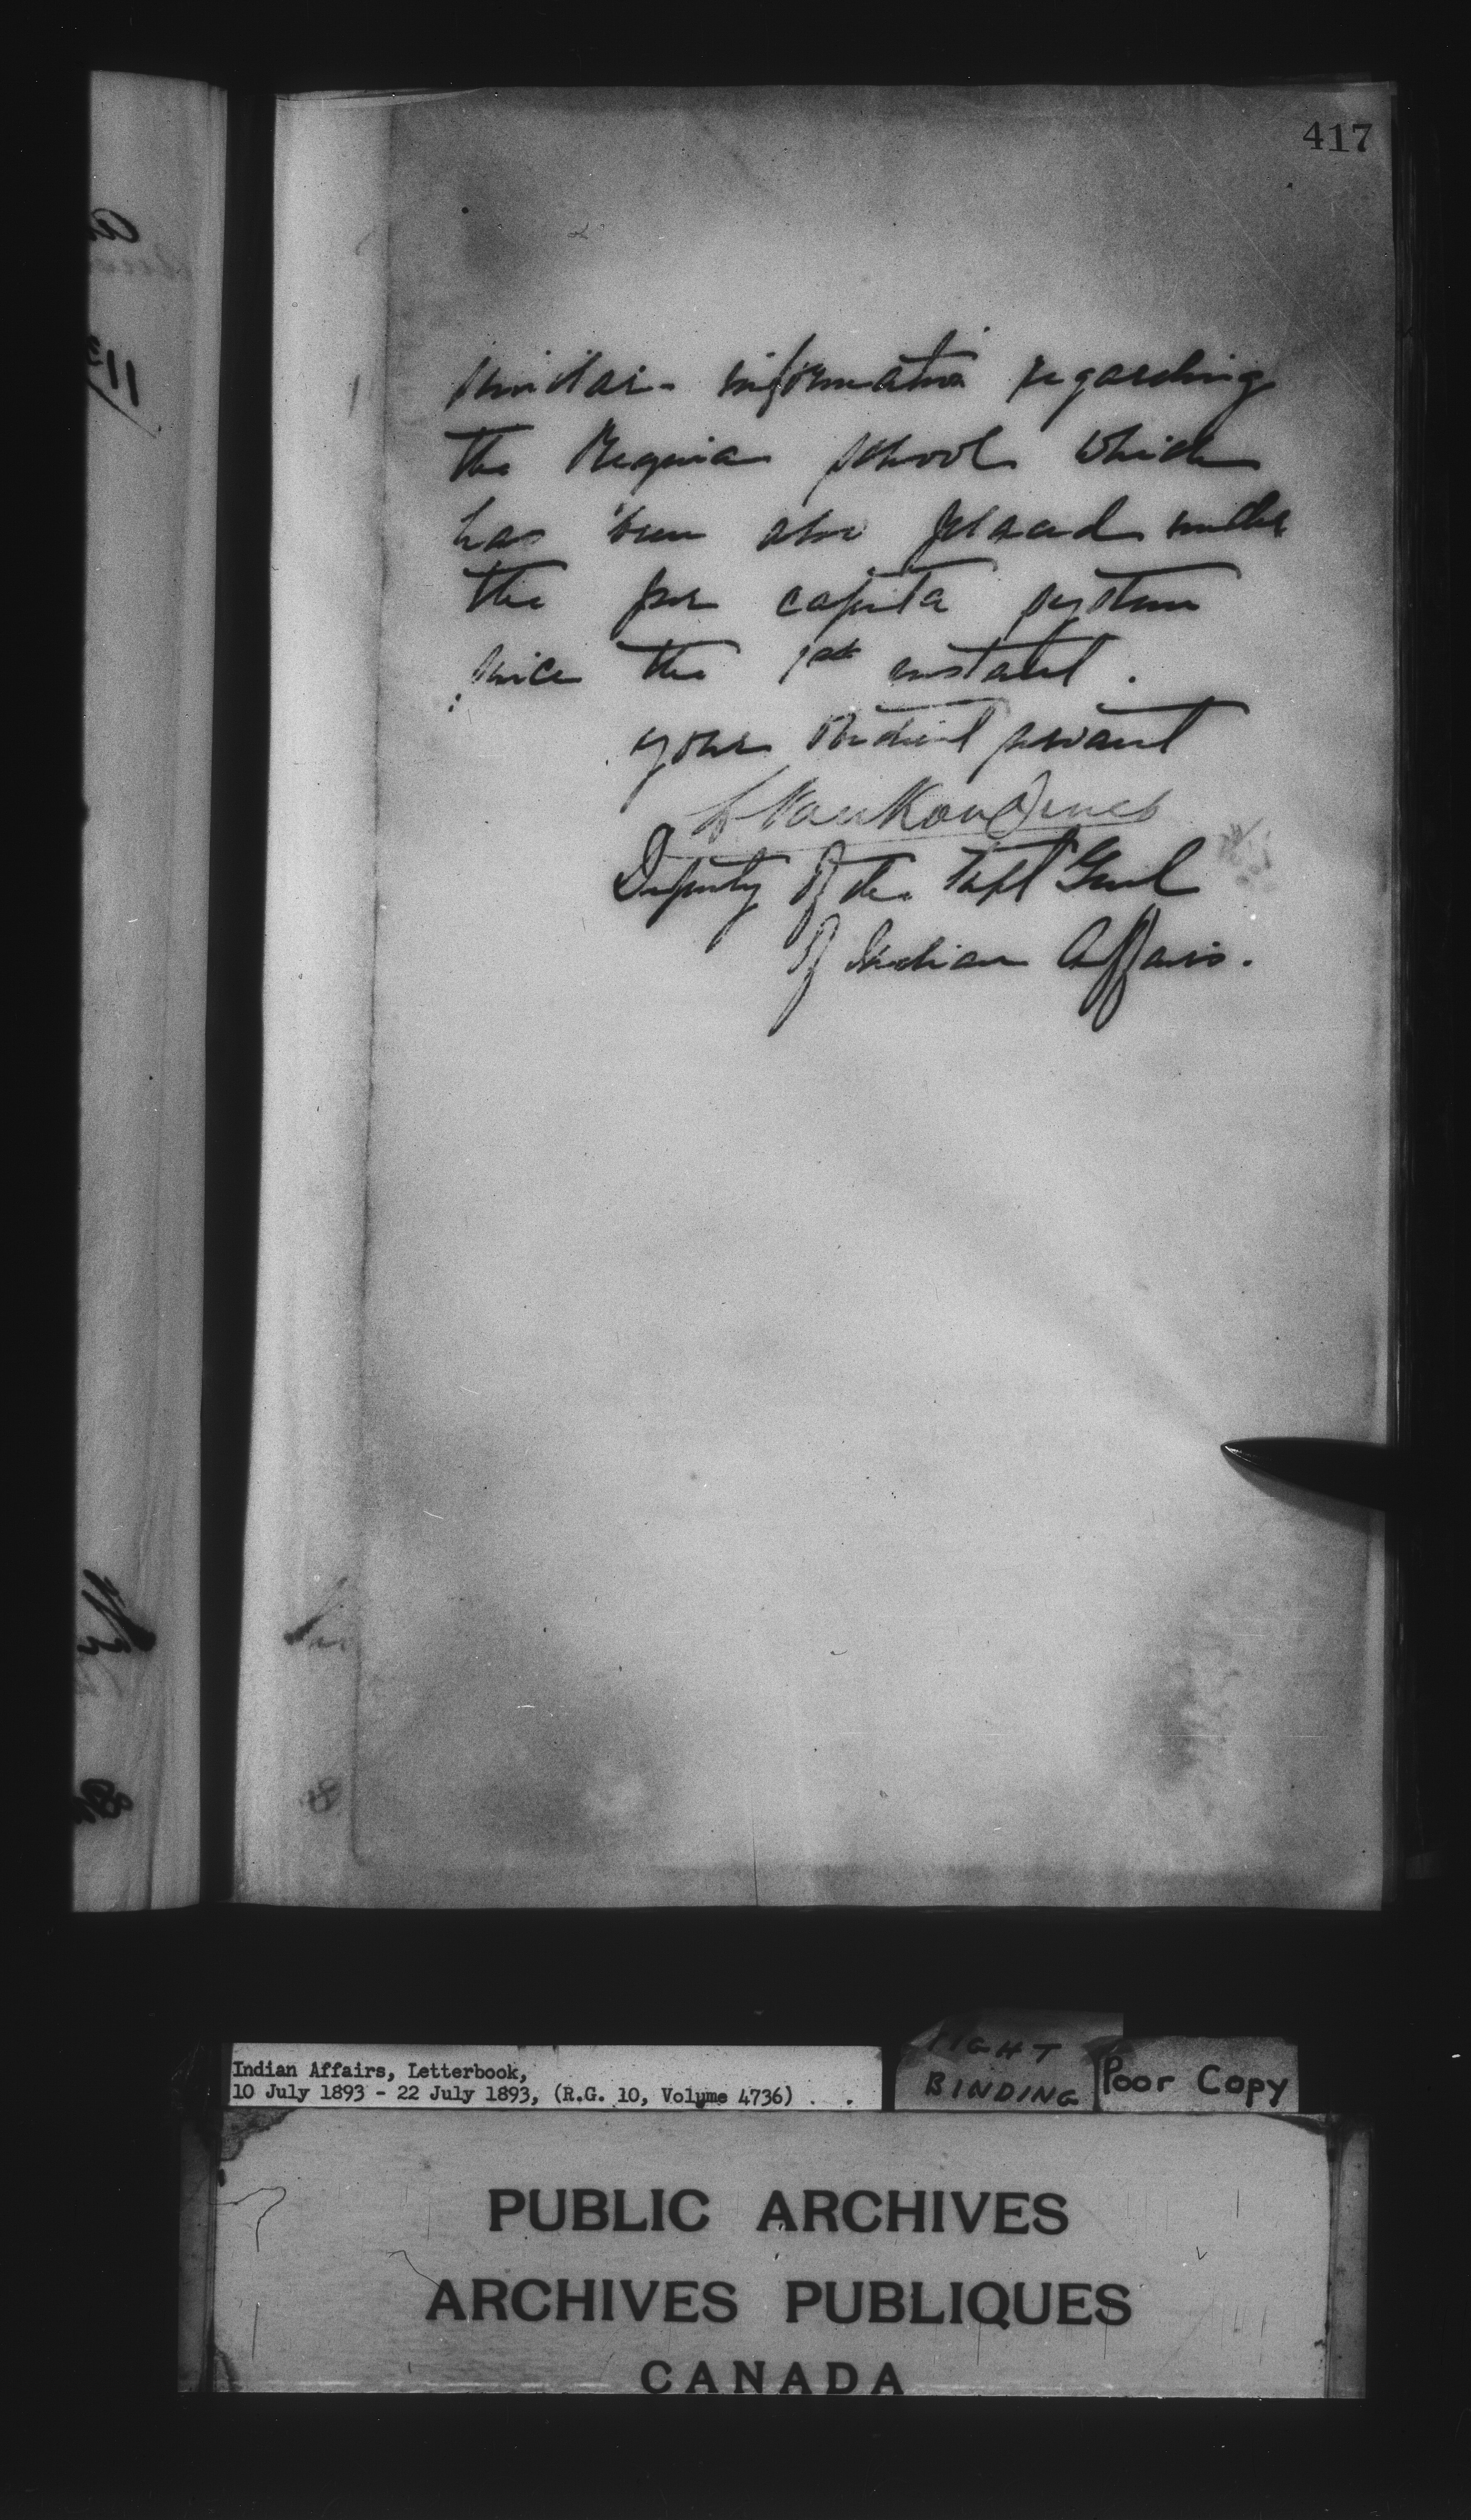 417
similar information regarding
the Regina school which
has been also placed under
the per capita system
since the 1st instant.
your obedient servant
L Vankoughnet
Deputy of the Supt Genl
of Indian Affairs.
Indian Affairs, Letterbook,
10 July 1893 - 22 July 1893, (R.G. 10, Volume 4736)
TIGHT
BINDING
Poor Copy
PUBLIC ARCHIVES
ARCHIVES PUBLIQUES
CANADA